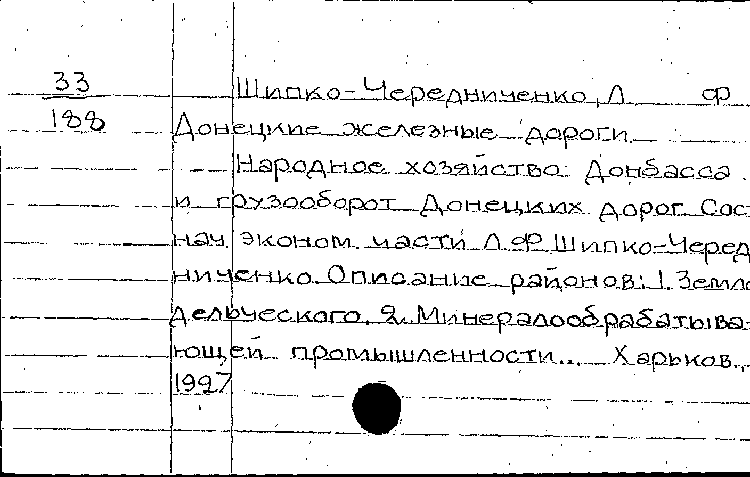 33 Шипко-Чередниченко, Л Ф
188 Донецкие железные дороги.
Народное хозяйство Донбасса
и грузооборот Донецких дорог. Сост
нач. эконом. части Л. Ф Шипко-Черед
ниченко. Описание районов: 1. Земле
дельческого. 2. Минералообрабатыва-
ющей промышленности... Харьков.,
1927